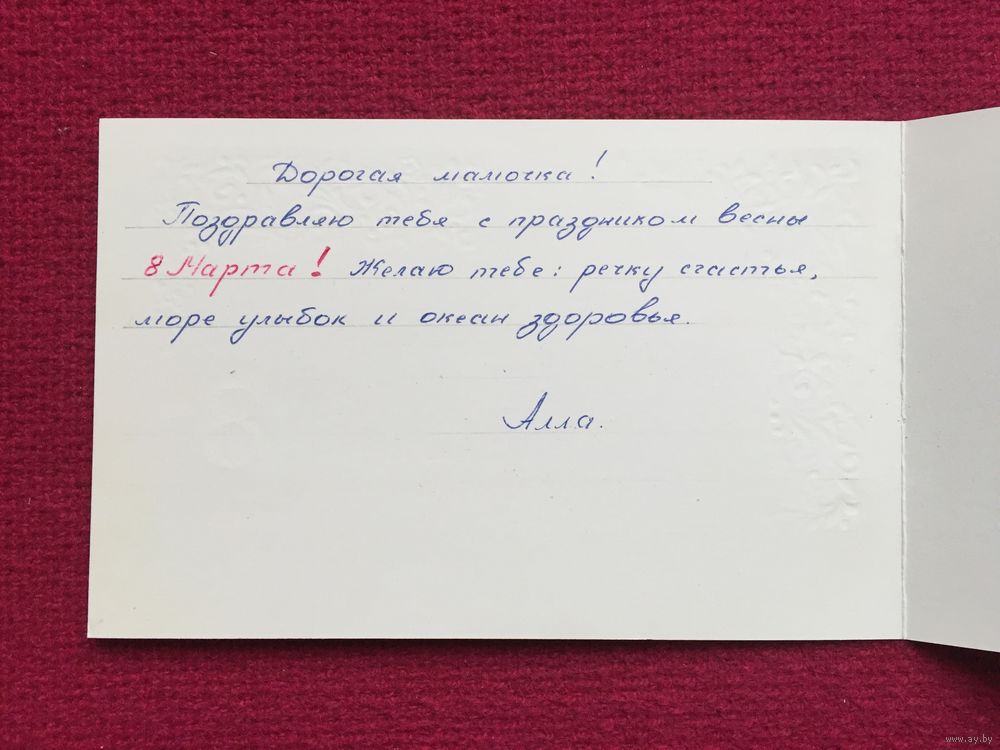 Дорогая мамочка!
Поздравляю тебя с праздником весны
8 Марта! Желаю тебе: речку счастья,
море улыбок и океан здоровья.
Алла.
www.ay.by